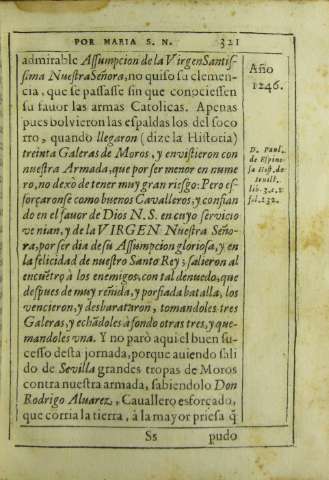 POR MARIA S. N. 321
admirable Assumpcion de la Virgen Santis-
sima Nuestra Señora, no quiso su clemen-
cia, que se passasse sin que conociessen
su fauor las armas Catolicas. Apenas
pues bolvieron las espaldas los del soco
rro, quando llegaron (dize la Historia)
treinta Galeras de Moros, y envistieron con
nuestra Armada, que por ser menor en nume
ro, no dexo de tener muy gran riesgo: Pero es-
forçaronse como buenos Cavalleros, y confian
do en el fauor de Dios N. S. en cuyo servicio
venian, y de la VIRGEN Nuestra Seño-
ra, por ser dia de su Assumpcion gloriosa, y en
la felicidad de nuestro Santo Rey; salieron al
encuẽtro à los enemigos, con tal denuedo, que
despues de muy reñida, y porfiada batalla, los
vencieron, y desbarataron, tomandoles tres
Galeras, y echãdoles à fondo otras tres, y que-
mandoles vna. Y no parò aqui el buen su-
cesso desta jornada, porque auiendo sali
do de Sevilla grandes tropas de Moros
contra nuestra armada, sabiendolo Don
Rodrigo Alvarez, Cavallero esforçado,
que corria la tierra, à la mayor priesa q̃
Ss pudo
Año
1246.
D. Paul.
de Espino
sa Hist. de
Sevill.
lib. 3. c. 2
fol. 132.